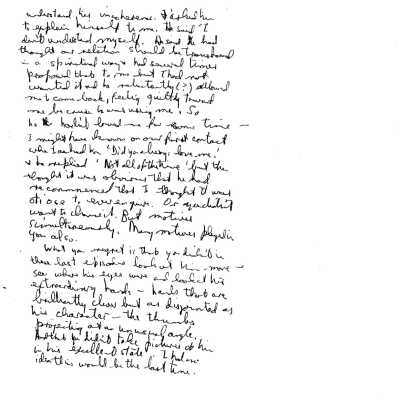 understand his incoherence. I asked him
to explain himself to me. He said "I
don't understand myself. He said he had
thought our relation should be transformed
in a spiritual way & had several times
proposed that to me but I had not
wanted it and he reluctantly (?) allowed
me to come back, feeling guilty toward
me because he was using me. So
he hadn't loved me for some time –
I might have known on our first contact
when I asked him 'Did you always love me?'
& he replied 'Not all of the time' but the
thought it was obvious that he had
recommenced that I thought it was
otiose to even
want to change it. But motives
simultaneously. Many motives played in
you also.
What you regret is that you didn't in
these last episodes look at him more –
see where his eyes were and look at his
extraordinary hands – hands that are
brilliantly clear but as disjointed as
his character – the thumbs
projecting at an unusual angle.
And that he didn't take pictures of him
in his excellent state. I had no
idea this would be the last time.